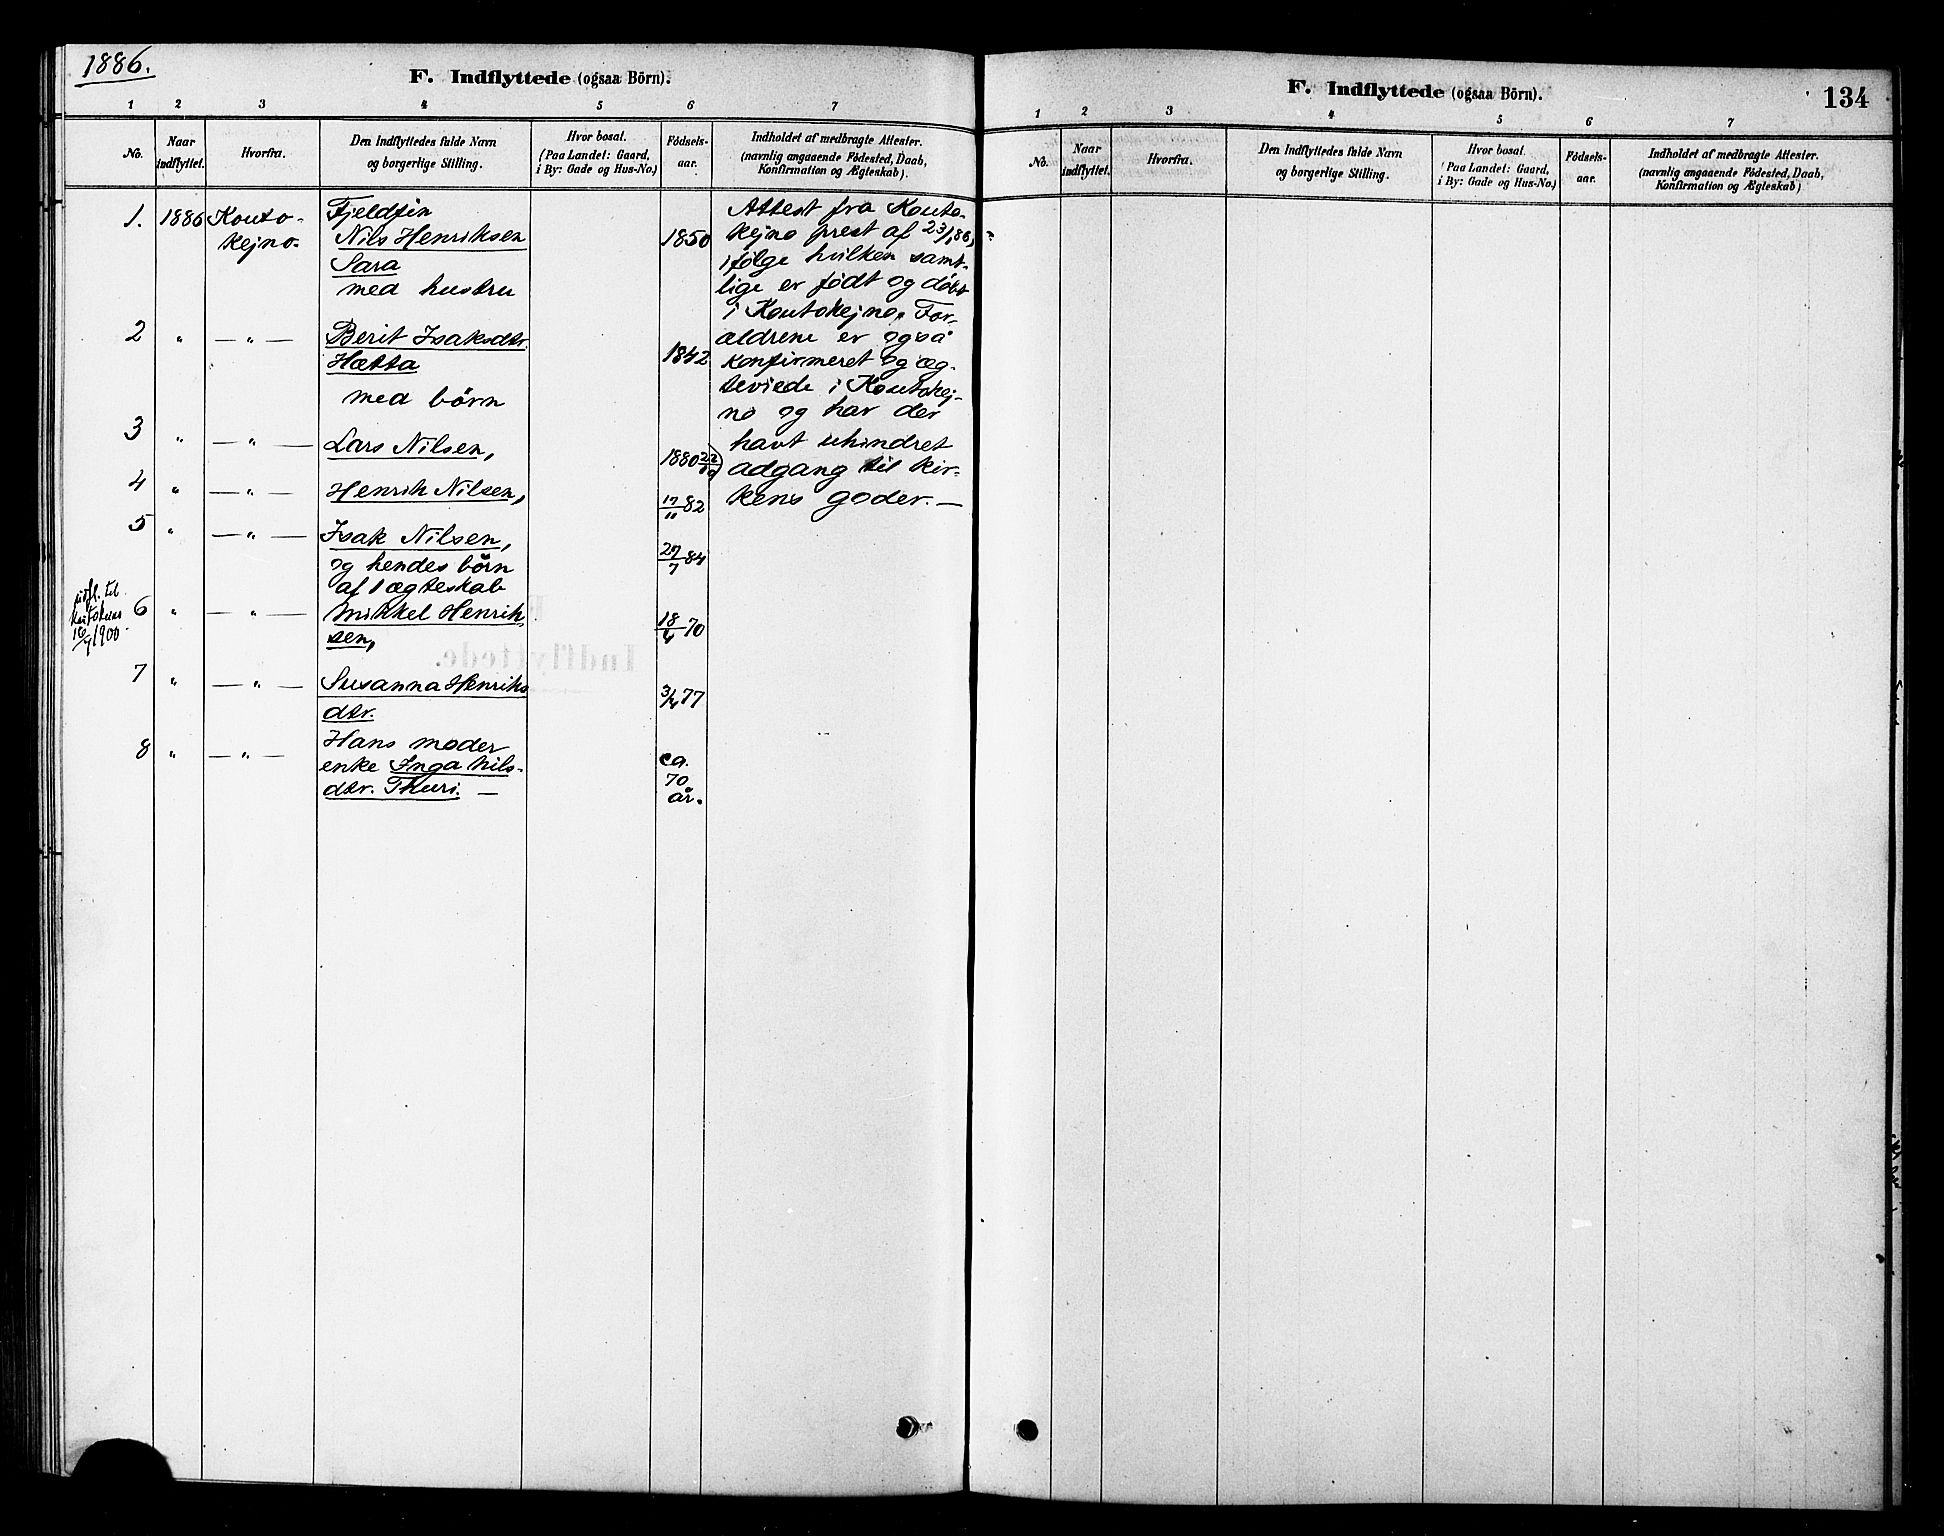 1886.
F. Indflyttede (ogsaa Börn).
1 2 3 4 5 6 7
No. Naar indflyttet. Hvorfra. Den Indflyttedes fulde Navn og borgerlige Stilling. Hvor bosat. (Paa Landet: Gaard, i By: Gade og Hus-No.) Födsels-aar. Indholdet af medbragte Attester. (navnlig angaaende Födested, Daab, Konfirmation og Ægteskab).
1. 1886 Kouto-
kejno
Fjeldfin
Nils Henriksen
Sara
med hustru
1850
2 " — " — Berit Isaksdtr.
Hætta
med börn
1842
3 " — " — Lars Nilsen, 1880 22/10
4 " — " — Henrik Nilsen, 17/11 82
5 " — " — Isak Nilsen, 27/7 84
og hendes börn
af 1 ægteskab
udfl. til
16/7 1900
6 " — " — Mikkel Henrik-
sen, 18/4 70
7 " — " — Susanna Henriks
dtr. 3/4 77
8 " — " — Hans moder
enke Inga Nils-
dtr. Thuri. —
ca.
70
år.
Attest fra Kouto-
kejno prest af 23/1 86,
ifölge hvilken samt-
lige er födt og döbt
i Koutokejno. For-
ældrene er også
konfirmeret og æg-
teviede i Koutokej-
no og har der
havt uhindret
adgang til kir-
kens goder. —
F. Indflyttede (ogsaa Börn).
134
1 2 3 4 5 6 7
No. Naar indflyttet. Hvorfra. Den Indflyttedes fulde Navn og borgerlige Stilling. Hvor bosat. (Paa Landet: Gaard, i By: Gade og Hus-No.) Födsels-aar. Indholdet af medbragte Attester. (navnlig angaaende Födested, Daab, Konfirmation og Ægteskab)